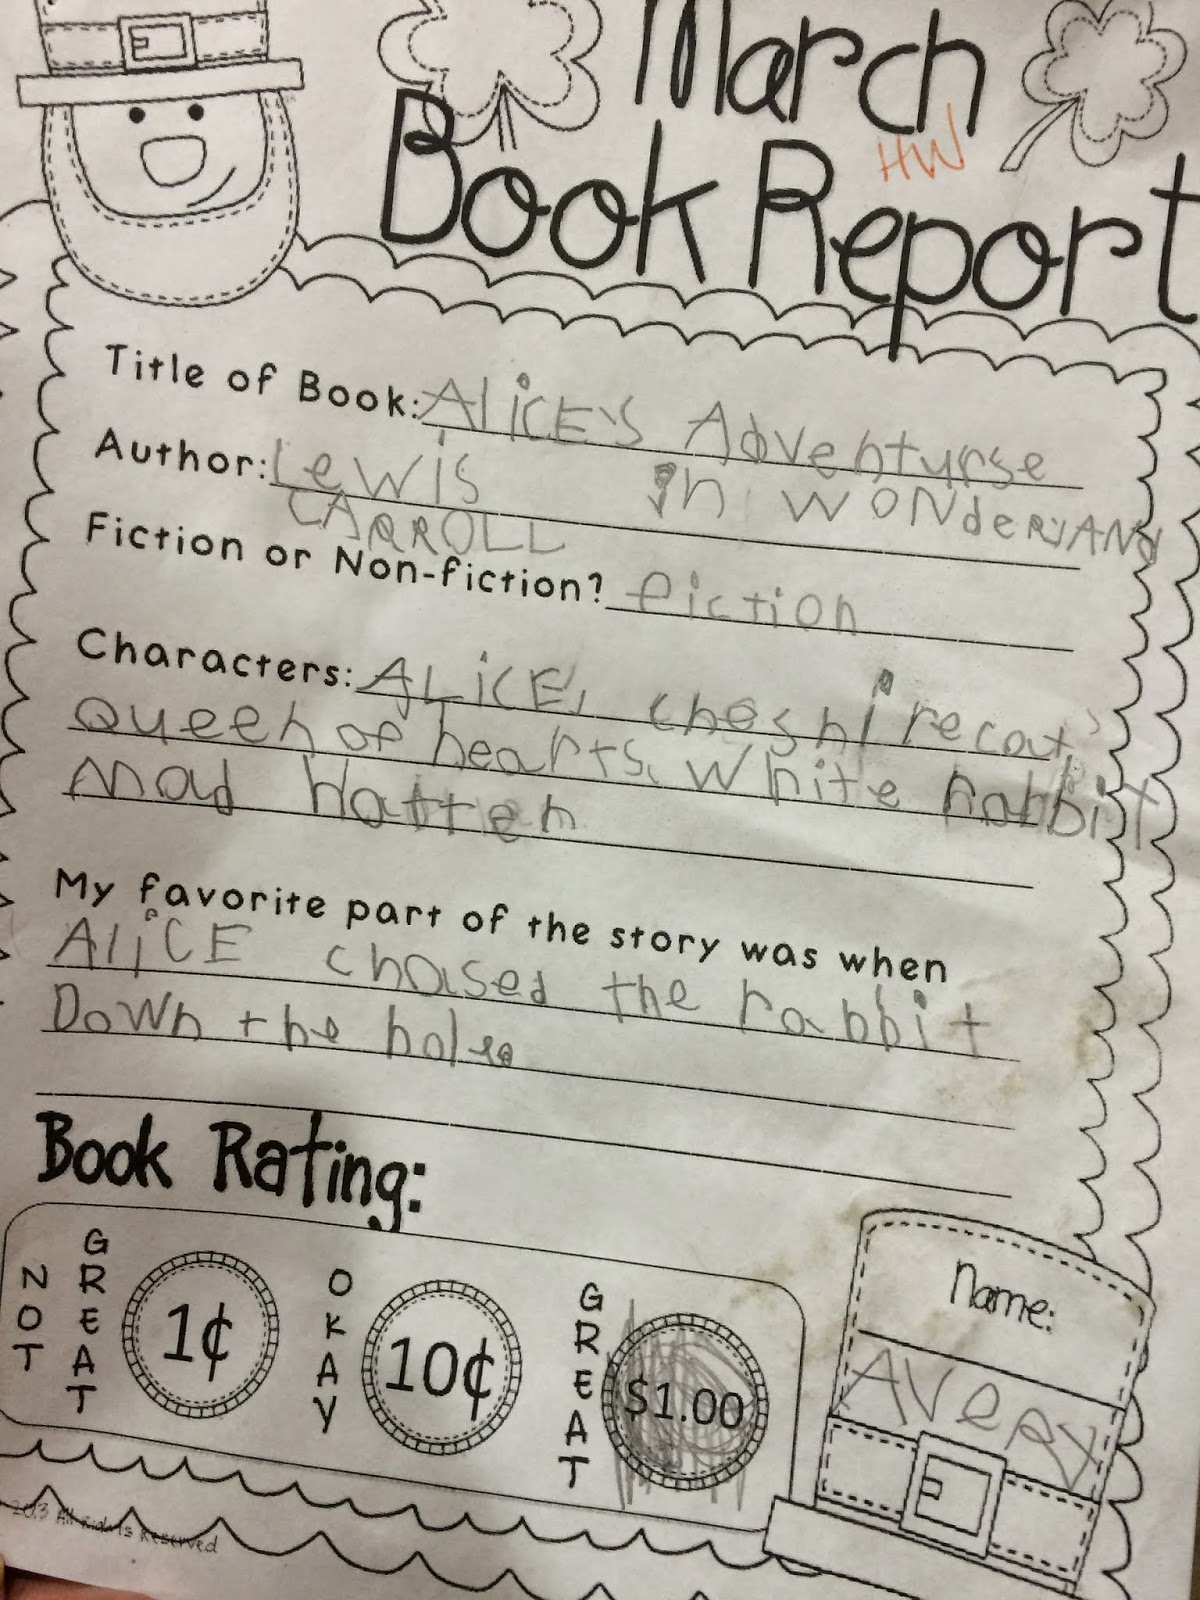 March
HW
Book Report
Title of Book: AliCE's Adventurse
in WONdeRlANd
Author: Lewis
CARROLL
Fiction or Non-fiction? fiction
Characters: ALiCE, cheshire cat,
queen of hearts, White rabbit
mad Hatter
My favorite part of the story was when
AliCE chased the rabbit
Down the hole
Book Rating:
NOT GREAT 1¢ OKAY 10¢ GREAT $1.00
Name:
AVeRY
2013 All Rights Reserved